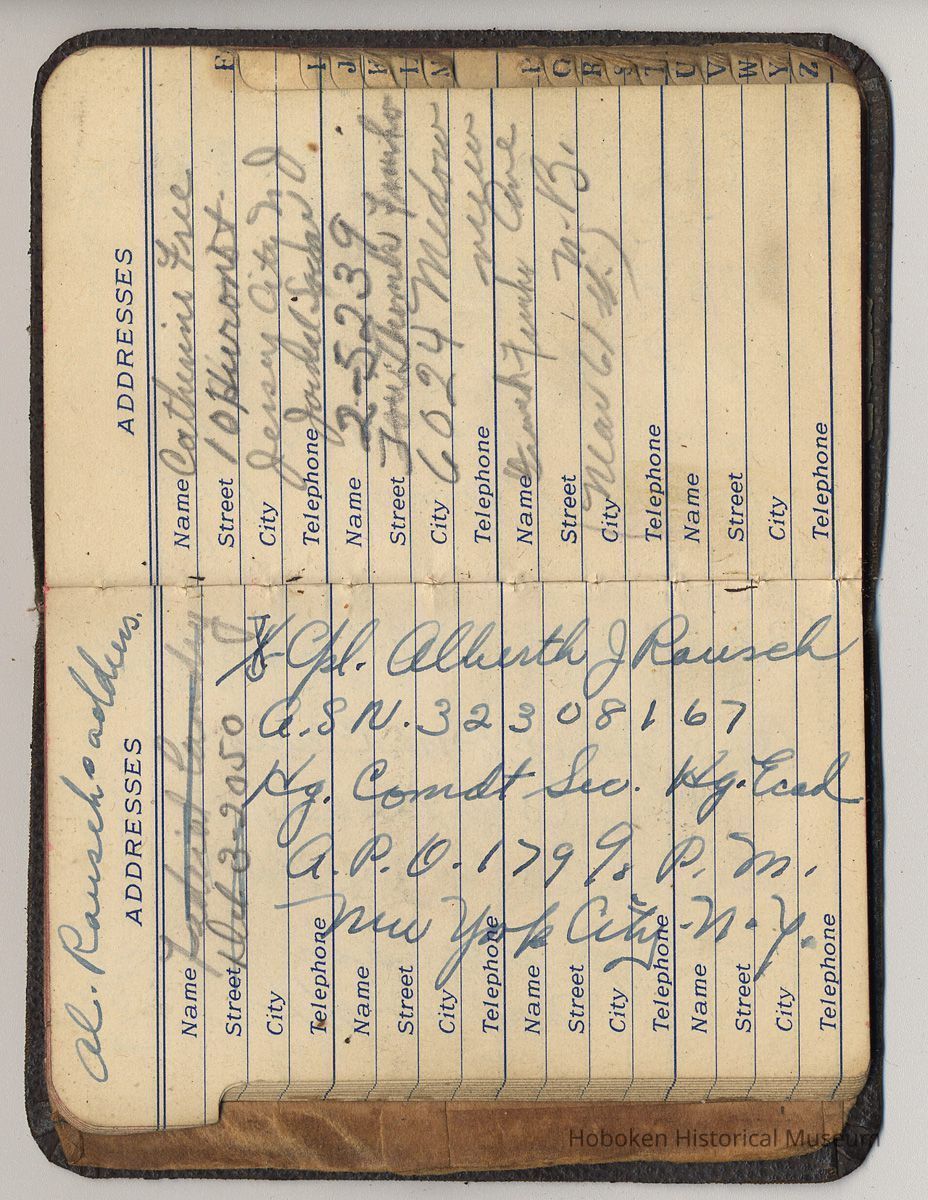 Al. Rausch's address.
ADDRESSES
Name
Street Del 3-2050
City
Telephone
Name
Street
City
Telephone
Name
Street
City
Telephone
Name
Street
City
Telephone
Cpl. Alberth J Rausch
A.S.N. 32308167
Hq. Comdt Sec. Hq. Ecad
A.P.O. 179 % P.M.
New York City - N.Y.
ADDRESSES
Name Catherine Free
Street 10
City Jersey City N J
Telephone
Name 2-5239
Street
City 6024 Medow
Telephone view
Name Frank
Street N.B.
City (Near 61 St.)
Telephone
Name
Street
City
Telephone
E I J K L M P Q R S T U V W Y Z
Hoboken Historical Museum